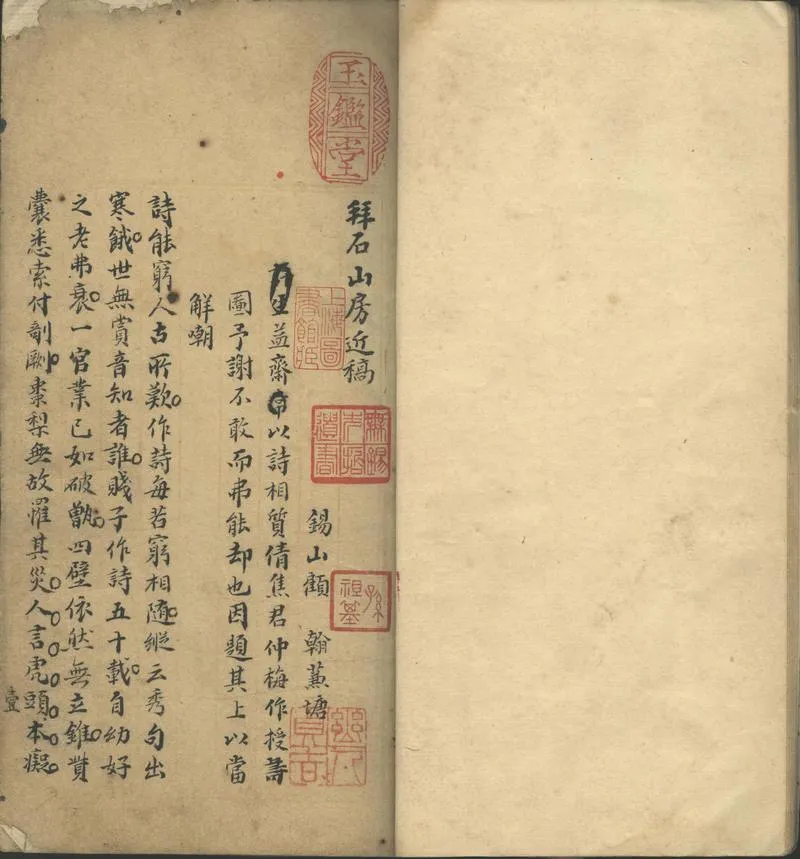 玉鑑堂
拜石山房近稿
上海圖書館藏
錫山顧 翰蒹塘
孫祖基
生益齋以詩相質倩焦君仲梅作授詩
圖予謝不敢而弗能却也因題其上以當
解嘲
詩能窮人古所歎作詩每若窮相隨縱云秀句出
寒餓世無賞音知者誰賤子作詩五十載自幼好
之老弗衰一官業已如破甑四壁依然無立錐貲
囊悉索付剞劂棗梨無故罹其災人言虎頭本癡
壹